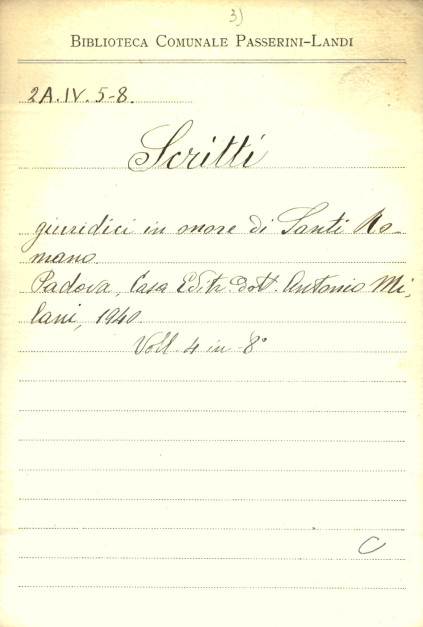 3)
BIBLIOTECA COMUNALE PASSERINI-LANDI
2A.IV.5-8.
Scritti
giuridici in onore di Santi Ro-
mano.
Padova, Casa Editr. dott. Antonio Mi-
lani, 1940
Voll. 4 in-8°
C